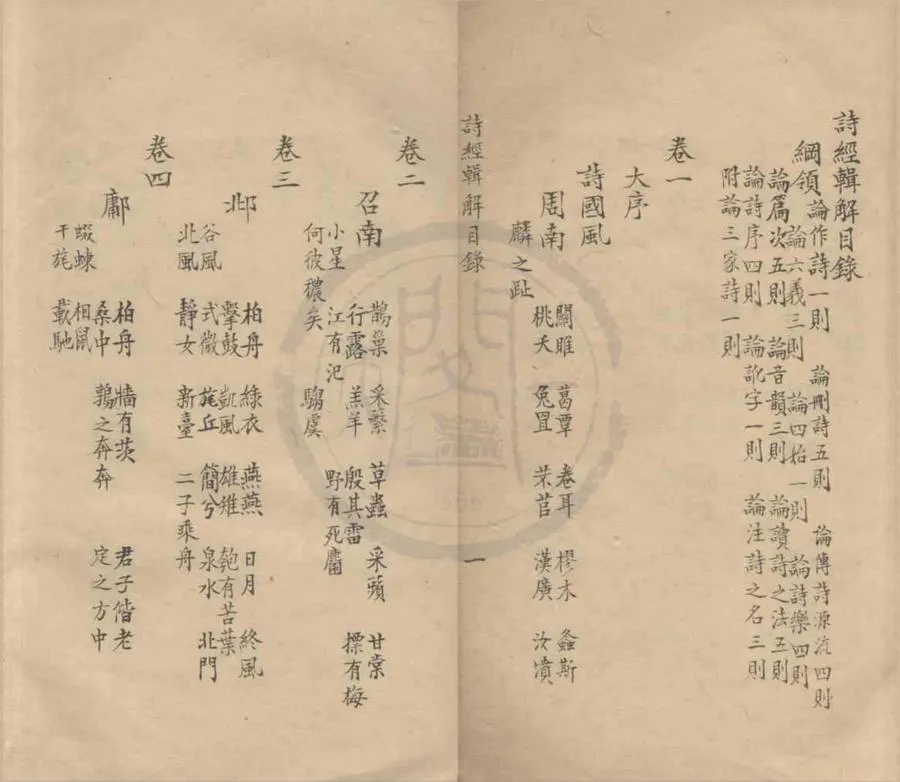 詩經輯解目錄
綱領 論作詩一則 論刪詩五則 論傳詩源流四則
論六義三則 論四始一則 論詩樂四則
論篇次五則 論音韻三則 論讀詩之法五則
論詩序四則 論訛字一則 論注詩之名三則
附論三家詩一則
卷一
大序
詩國風
周南 關雎 葛覃 卷耳 樛木 螽斯
桃夭 兔罝 芣苢 漢廣 汝墳
麟之趾
詩經輯解目錄 一
卷二
召南 鵲巢 采蘩 草蟲 采蘋 甘棠
行露 羔羊 殷其雷 摽有梅
小星 江有汜 野有死麕
何彼穠矣 騶虞
卷三
邶 柏舟 綠衣 燕燕 日月 終風
擊鼓 凱風 雄雉 匏有苦葉
谷風 式微 旄丘 簡兮 泉水 北門
北風 靜女 新臺 二子乘舟
卷四
鄘 柏舟 牆有茨 君子偕老
桑中 鶉之奔奔 定之方中
蝃蝀 相鼠
干旄 載馳